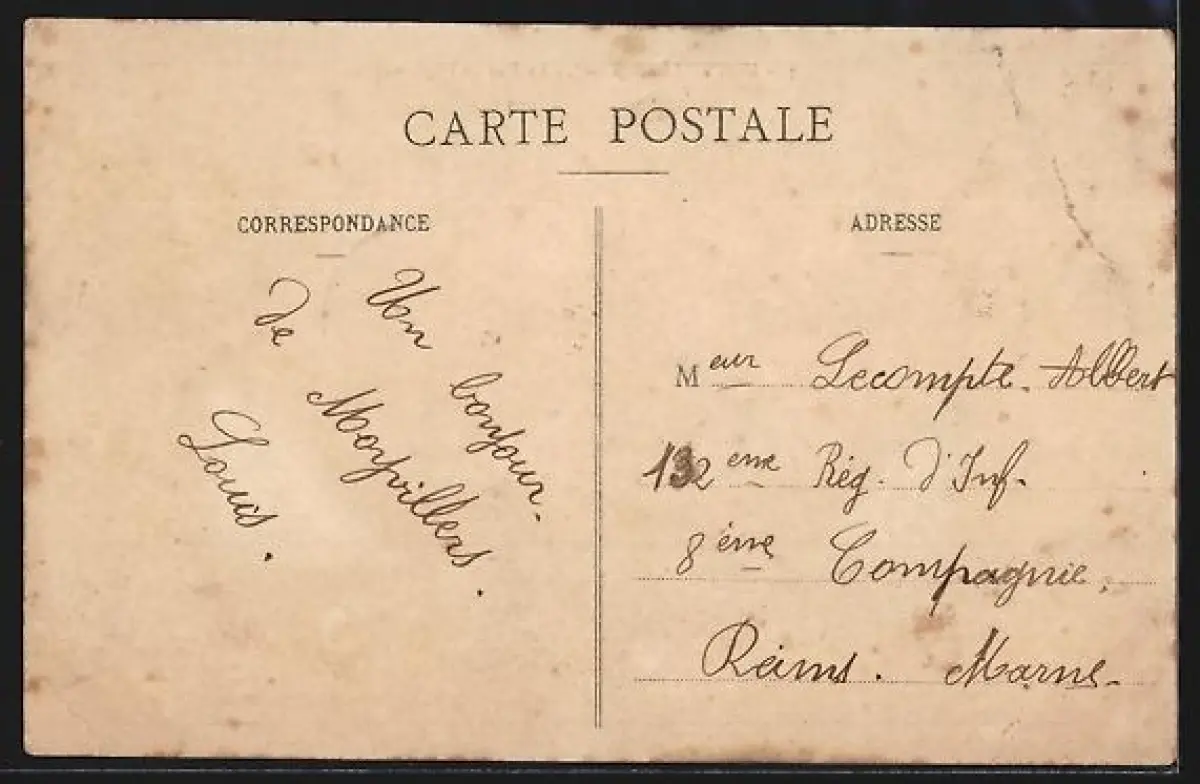 CARTE POSTALE
CORRESPONDANCE
Un bonjour.
de Moyvillers.
Louis.
ADRESSE
Meur Lecompte. Albert
132 eme Rég. d'Inf.
8 ème Compagnie.
Reims. Marne.